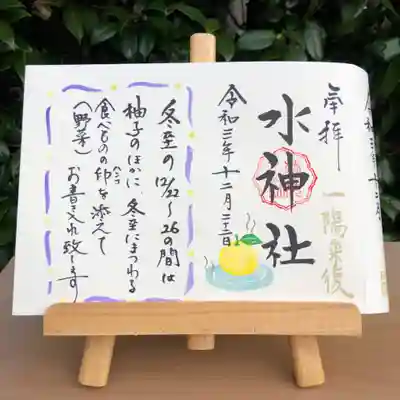 奉拝
一陽来復
水神社
令和三年十二月二十二日
冬至の12/22〜26の間は
柚子のほかに、冬至にまつわる
食べものの印を添えて
ハンコ
(野菜)
お書き入れ致します